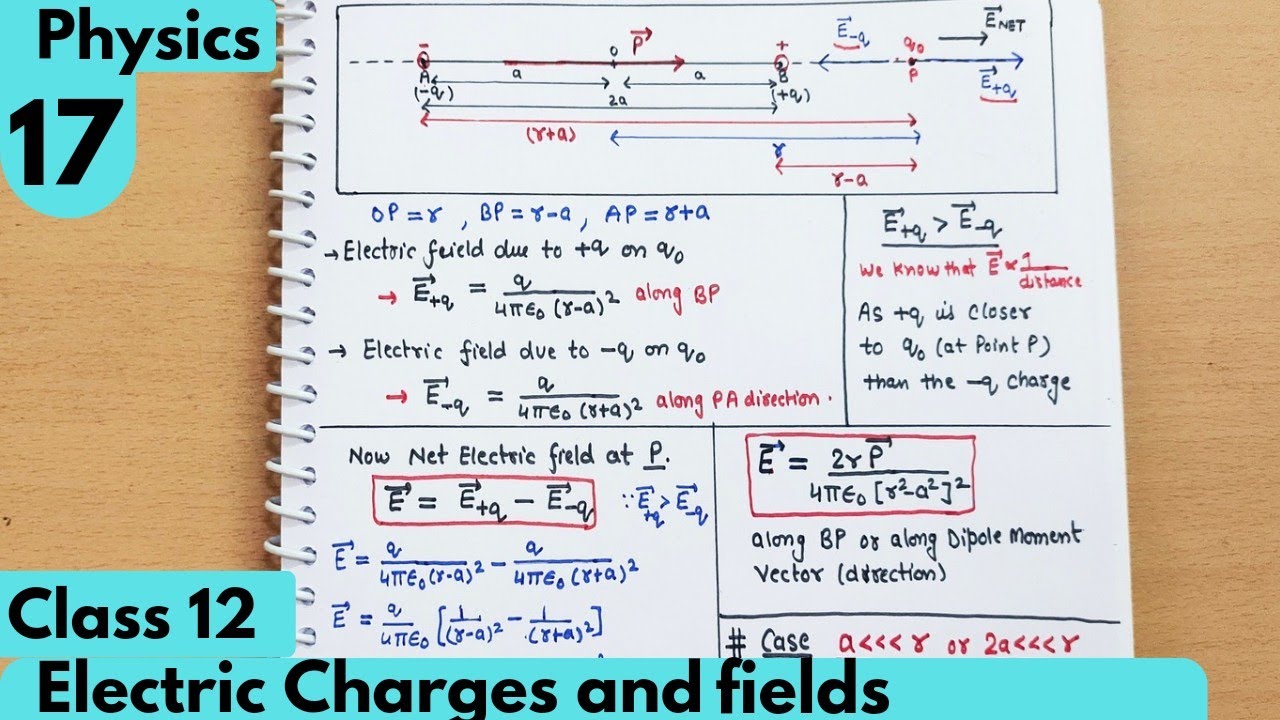 Physics
17
Class 12
Electric Charges and fields
E⃗-q
E⃗NET
- O P⃗ + q₀
A a a B P
E⃗+q
(-q) (+q)
2a
(r+a)
r
r-a
OP = r , BP = r-a , AP = r+a
→ Electric feield due to +q on q₀
→ E⃗+q = q / 4πε₀ (r-a)² along BP
→ Electric field due to -q on q₀
→ E⃗-q = q / 4πε₀ (r+a)² along PA direction.
E⃗+q > E⃗-q
We know that E⃗ ∝ 1/distance
As +q is closer
to q₀ (at Point P)
than the -q charge
Now Net Electric field at P.
E⃗ = E⃗+q - E⃗-q ∵ E⃗+q > E⃗-q
E⃗ = q / 4πε₀(r-a)² - q / 4πε₀(r+a)²
E⃗ = q / 4πε₀ [1/(r-a)² - 1/(r+a)²]
E⃗ = 2rP⃗ / 4πε₀ [r²-a²]²
along BP or along Dipole Moment
Vector (direction)
# Case a<<<r or 2a<<<r